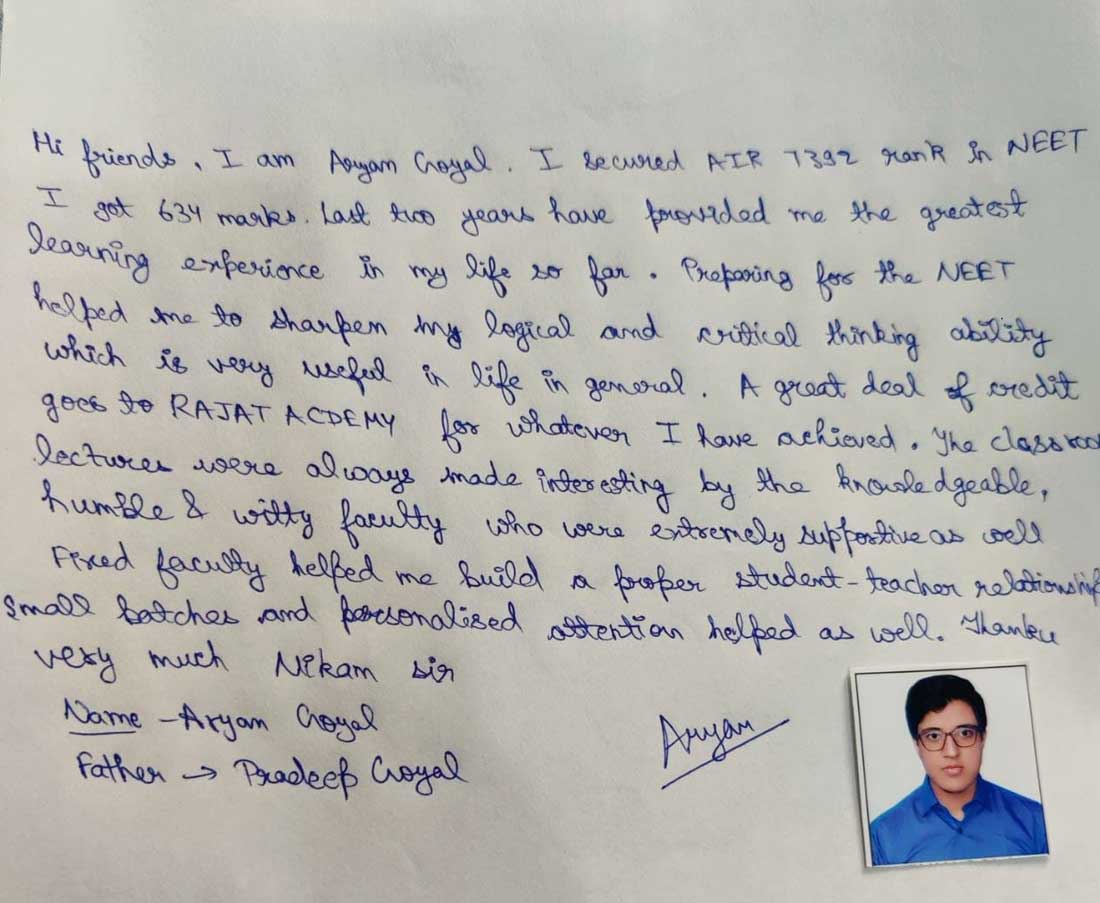 Hi friends, I am Aryam Goyal. I secured AIR 7392 rank in NEET
I got 634 marks. Last two years have provided me the greatest
learning experience in my life so far. Preparing for the NEET
helped me to sharpen my logical and critical thinking ability
which is very useful in life in general. A great deal of credit
goes to RAJAT ACDEMY for whatever I have achieved. The classroo
lectures were always made interesting by the knowledgeable,
humble & witty faculty who were extremely supportive as well
Fixed faculty helped me build a proper student-teacher relationship
Small batches and personalised attention helped as well. Thanku
very much Nikam sir
Name - Aryam Goyal
Father → Pradeep Goyal
Aryam